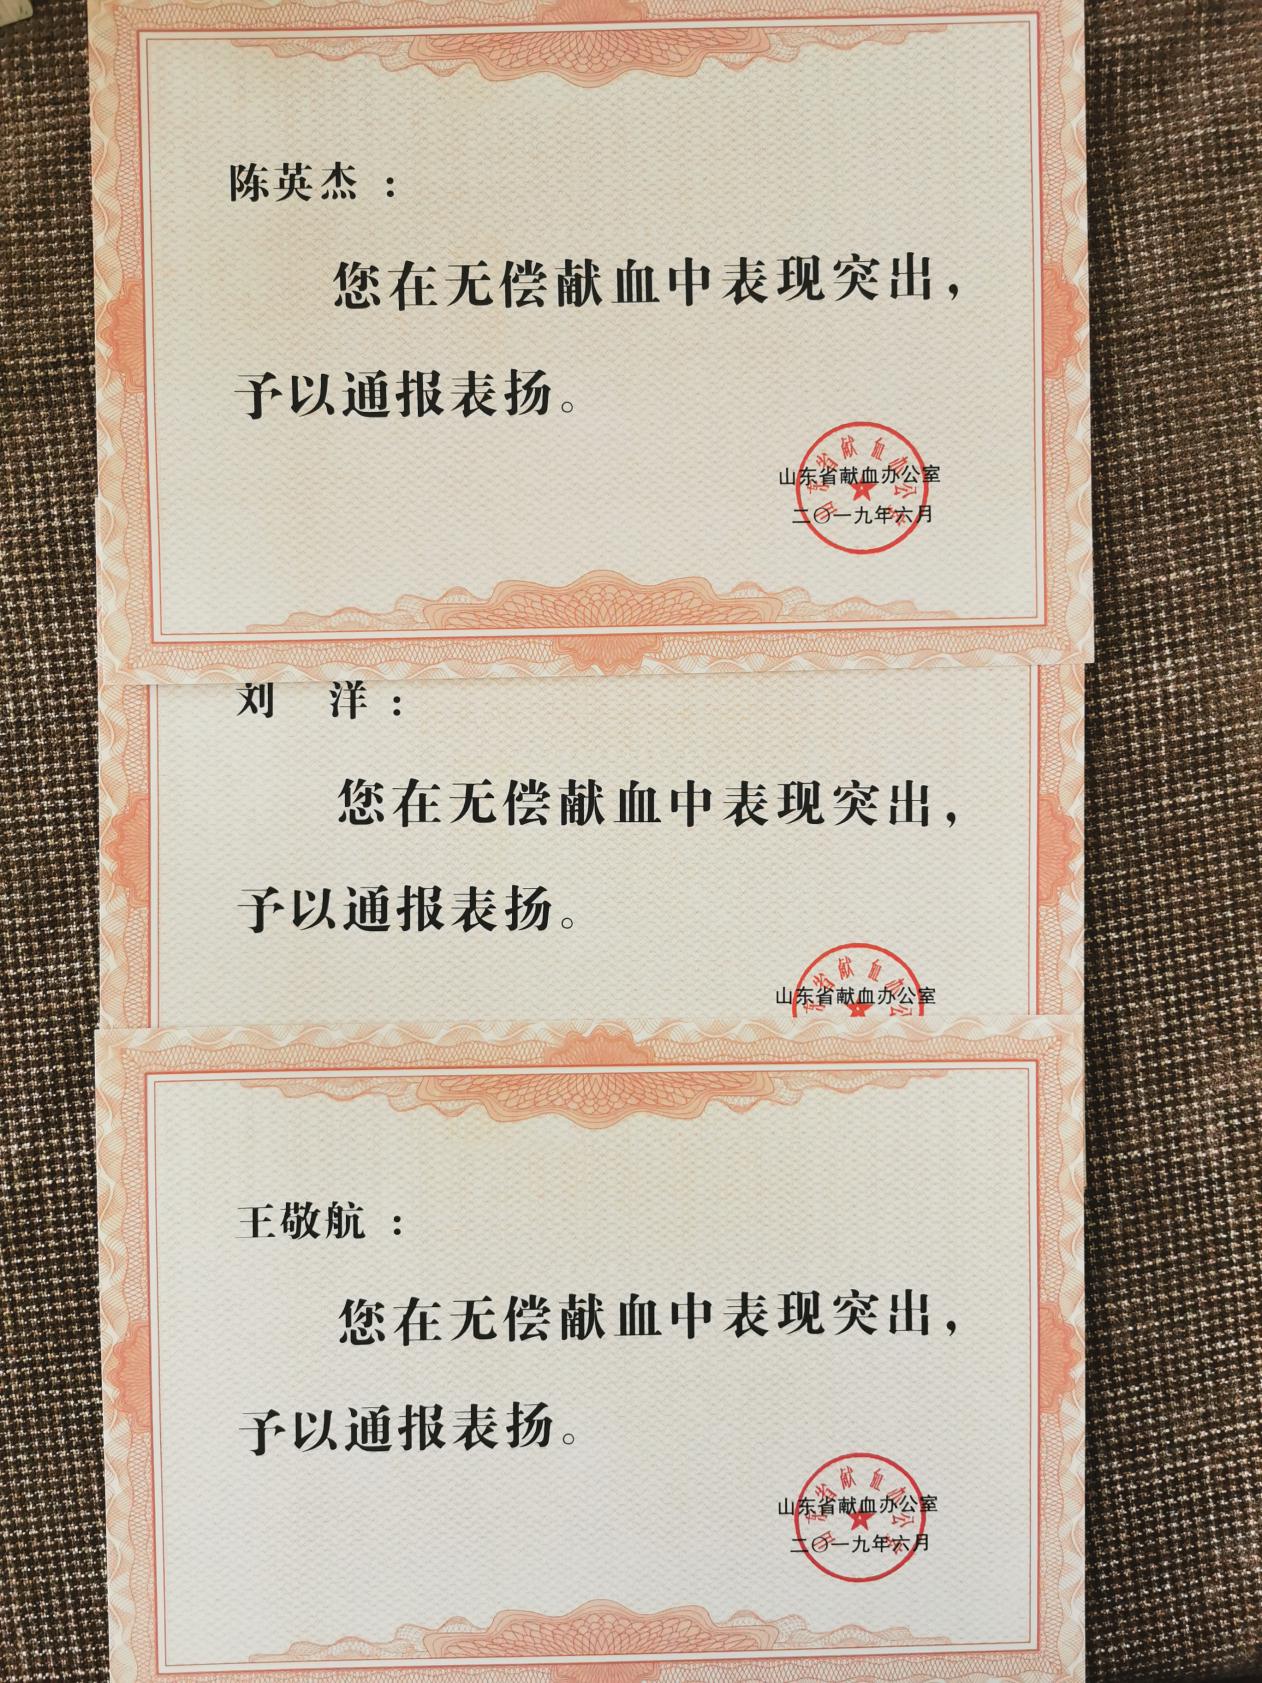 陈英杰 :
您在无偿献血中表现突出，
予以通报表扬。
山东省献血办公室
二〇一九年六月
山东省献血办公室
刘 洋 :
您在无偿献血中表现突出，
予以通报表扬。
山东省献血办公室
省献血办公
王敬航 :
您在无偿献血中表现突出，
予以通报表扬。
山东省献血办公室
二〇一九年六月
山东省献血办公室